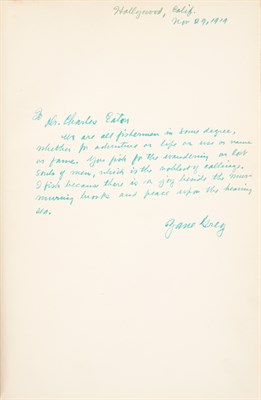 Hollywood, Calif.
Nov 29, 1919
To Mr. Charles Eaton
We are all fishermen in some degree,
whether for adventure or life or use or name
or fame. You fish for the wandering or lost
souls of men, which is the noblest of callings.
I fish because there is a joy beside the mur-
muring brooks and peace upon the heaving
sea.
Zane Grey